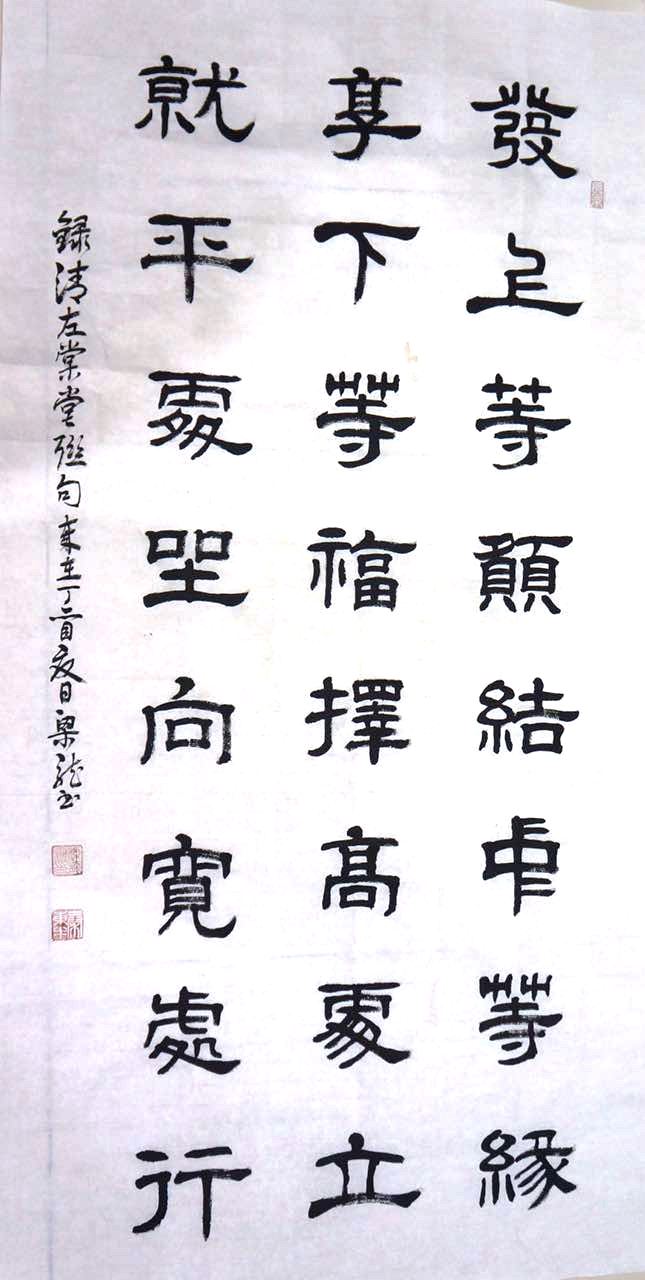 發上等願結中等緣
享下等福擇高處立
就平處坐向寬處行
錄清左棠堂聯句 東 丁酉夏日梁龍書